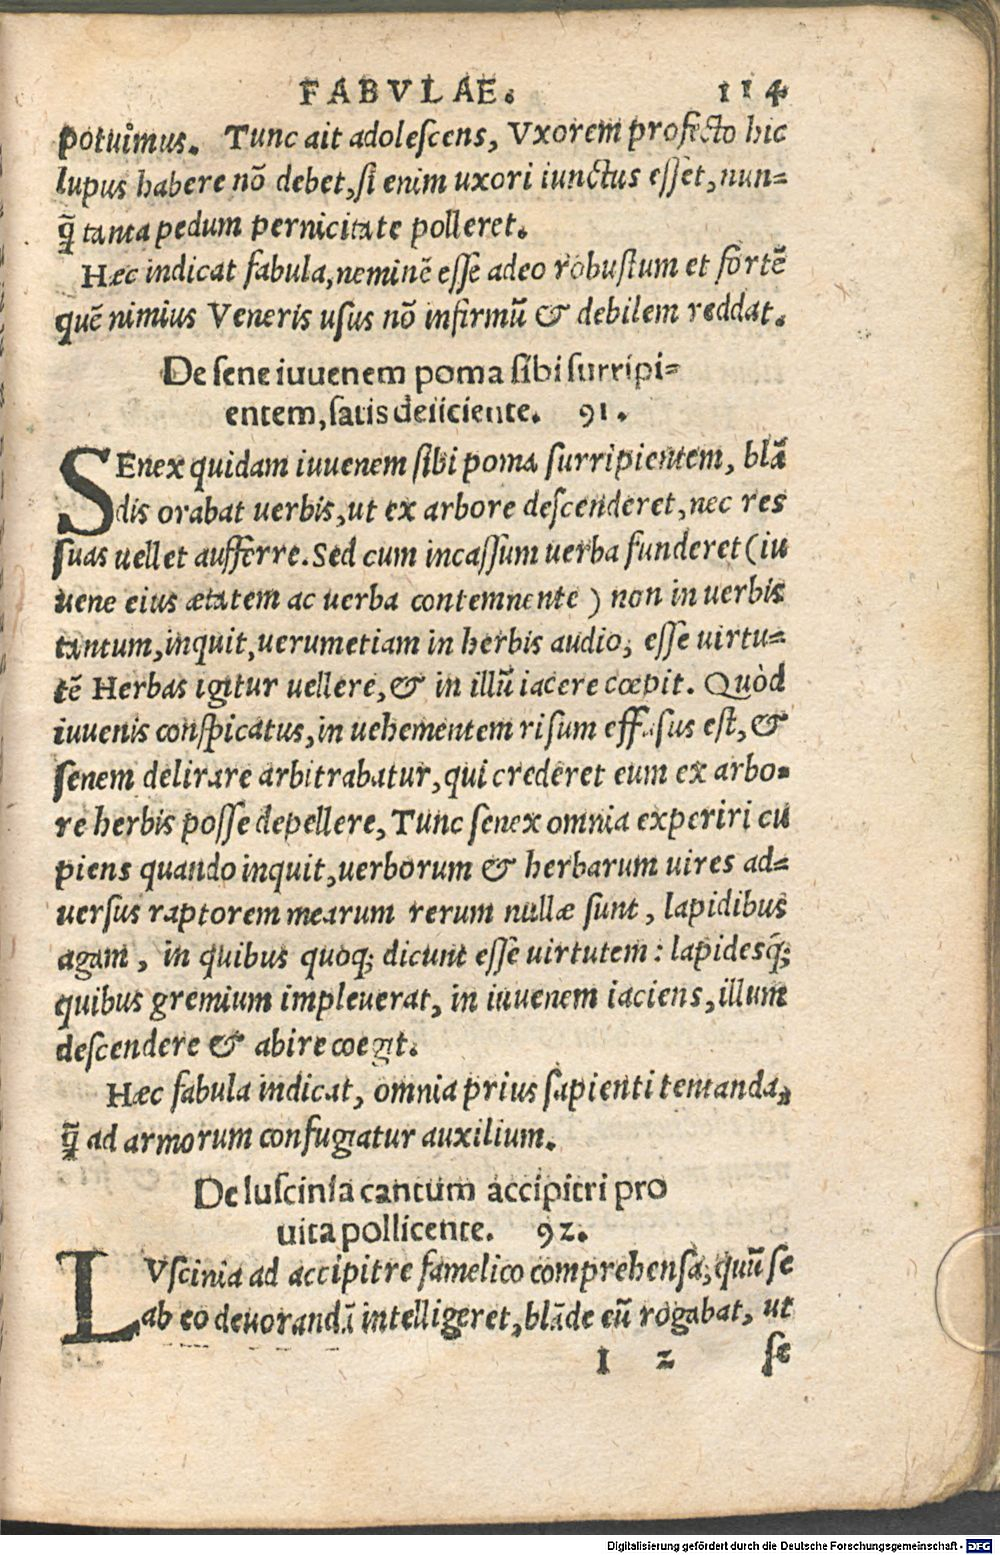 FABVLAE. 114
potuimus. Tunc ait adolescens, Vxorem profecto hic
lupus habere nō debet, si enim uxori iunctus esset, nun=
q̄ tanta pedum pernicitate polleret.
Hæc indicat fabula, neminē esse adeo robustum et fortē
quē nimius Veneris usus nō infirmū & debilem reddat.
De sene iuuenem poma sibi surripi=
entem, satis deiiciente. 91.
SEnex quidam iuuenem sibi poma surripientem, blā
dis orabat uerbis, ut ex arbore descenderet, nec res
suas uellet aufferre. Sed cum incassum uerba funderet (iu
uene eius ætatem ac uerba contemnente) non in uerbis
tantum, inquit, uerumetiam in herbis audio, esse uirtu=
tē Herbas igitur uellere, & in illū iacere cœpit. Quòd
iuuenis conspicatus, in uehementem risum effusus est, &
senem delirare arbitrabatur, qui crederet eum ex arbo=
re herbis posse depellere, Tunc senex omnia experiri cu
piens quando inquit, uerborum & herbarum uires ad=
uersus raptorem mearum rerum nullæ sunt, lapidibus
agam, in quibus quoq; dicunt esse uirtutem: lapidesq́;
quibus gremium impleuerat, in iuuenem iaciens, illum
descendere & abire coegit.
Hæc fabula indicat, omnia prius sapienti tentanda,
q̄ ad armorum confugiatur auxilium.
De luscinia cantum accipitri pro
uita pollicente. 92.
LVscinia ad accipitre famelico comprehensa, quū se
ab eo deuorandā intelligeret, blāde eū rogabat, ut
I 2 se
Digitalisierung gefördert durch die Deutsche Forschungsgemeinschaft - DFG